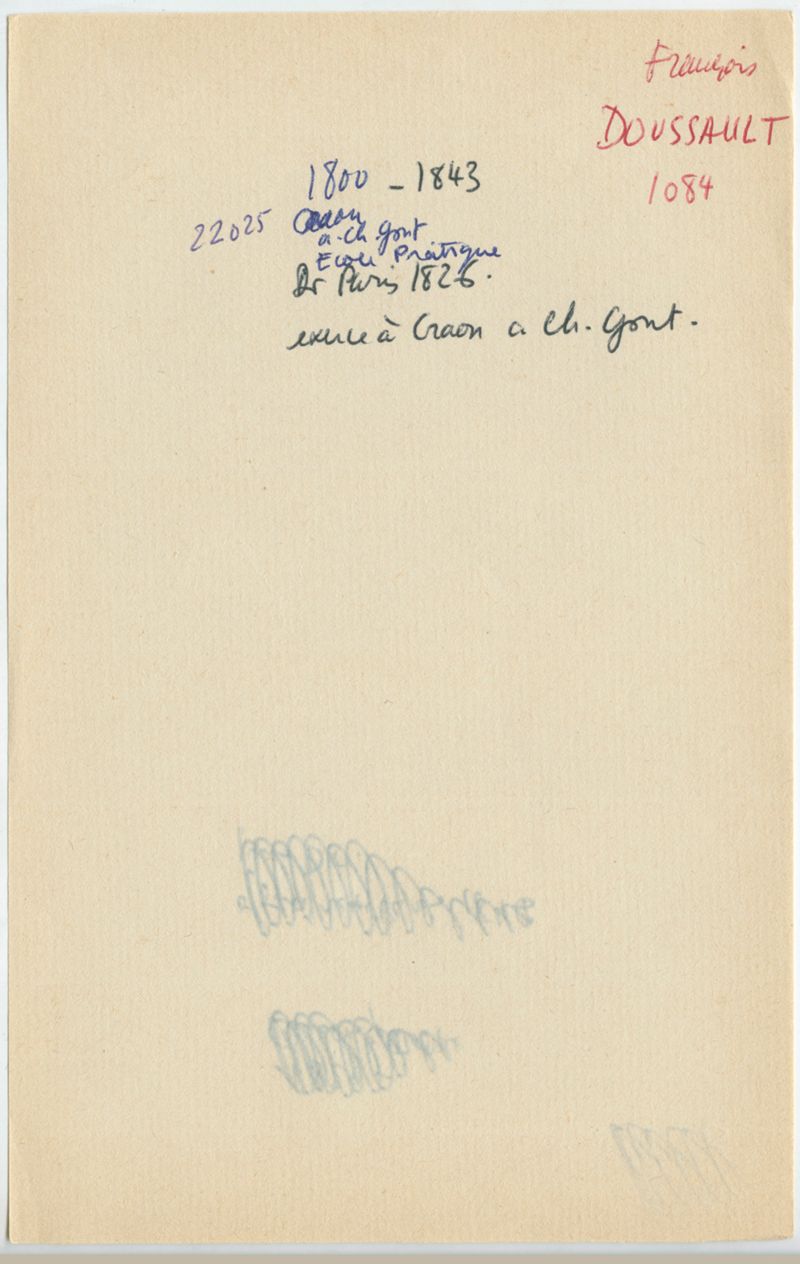 François
DOUSSAULT
1084
1800 - 1843
22025 Craon
a. ch. Gont
Ecole Pratique
Dr Paris 1826.
exerce à Craon a Ch. Gont.